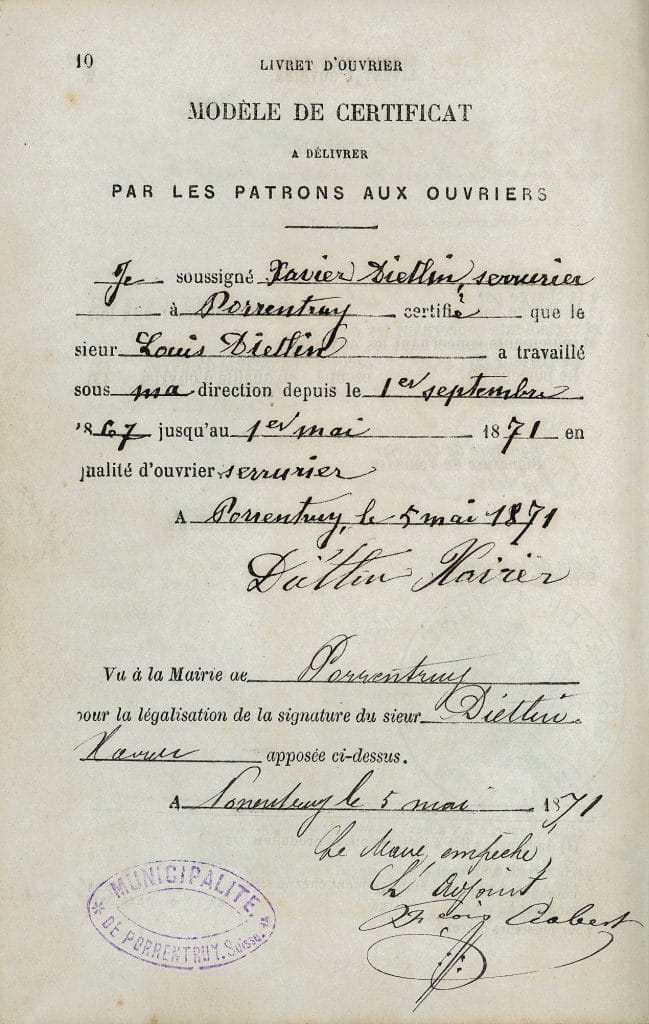 10
LIVRET D'OUVRIER
MODÈLE DE CERTIFICAT
A DÉLIVRER
PAR LES PATRONS AUX OUVRIERS
Je soussigné Xavier Dietlin, serrurier
à Porrentruy certifié que le
sieur Louis Dietlin a travaillé
sous ma direction depuis le 1er septembre
1867 jusqu'au 1er mai 1871 en
qualité d'ouvrier serrurier
A Porrentruy, le 5 mai 1871
Dietlin Xavier
Vu à la Mairie de Porrentruy
pour la légalisation de la signature du sieur Dietlin
Xavier apposée ci-dessus.
A Porrentruy le 5 mai 1871
Le Maire, empêché,
L'adjoint
Robert
* MUNICIPALITÉ. *
DE PORRENTRUY. Suisse.